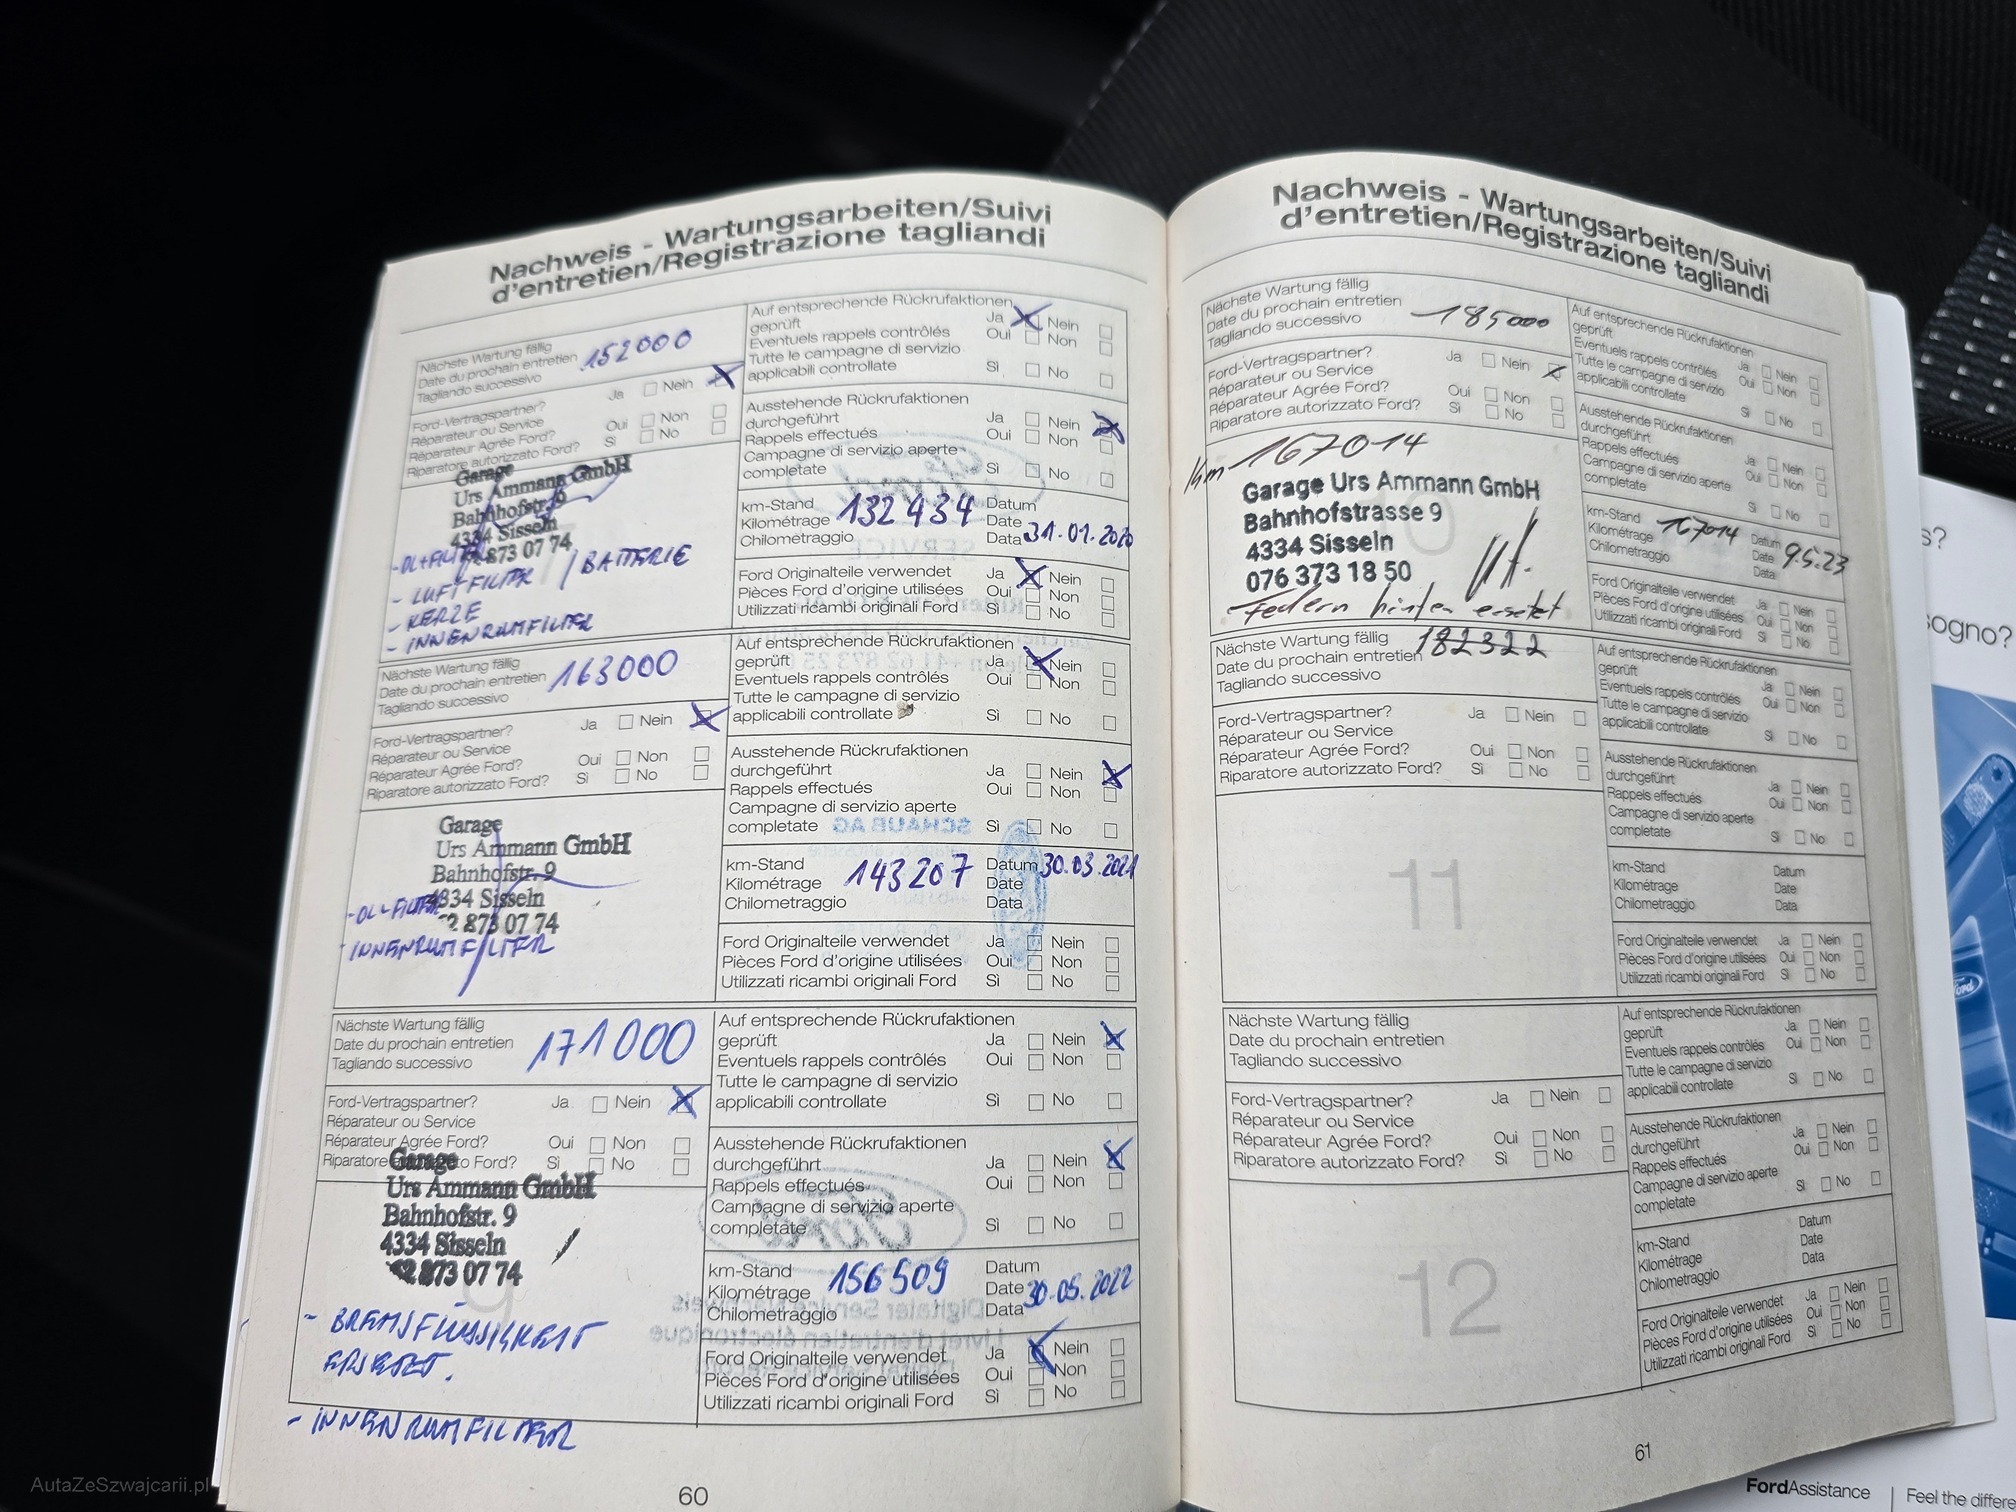 Nachweis - Wartungsarbeiten/Suivi
d'entretien/Registrazione tagliandi
Nächste Wartung fällig
Date du prochain entretien 152000
Tagliando successivo
Ford-Vertragspartner? Ja Nein
Réparateur ou Service
Réparateur Agrée Ford? Oui Non
Riparatore autorizzato Ford? Sì No
Garage
Urs Ammann GmbH
Bahnhofstr. 9
4334 Sisseln
873 07 74
- LUFTFILTER / BATTERIE
- KERZE
- INNENRUMFILTER
Auf entsprechende Rückrufaktionen
geprüft Ja Nein
Eventuels rappels contrôlés Oui Non
Tutte le campagne di servizio
applicabili controllate Sì No
Ausstehende Rückrufaktionen
durchgeführt Ja Nein
Rappels effectués Oui Non
Campagne di servizio aperte
completate Sì No
km-Stand Datum
Kilométrage 132434 Date
Chilometraggio Data 31.01.2020
Ford Originalteile verwendet Ja Nein
Pièces Ford d'origine utilisées Oui Non
Utilizzati ricambi originali Ford Sì No
Nächste Wartung fällig
Date du prochain entretien 163000
Tagliando successivo
Ford-Vertragspartner? Ja Nein
Réparateur ou Service
Réparateur Agrée Ford? Oui Non
Riparatore autorizzato Ford? Sì No
Garage
Urs Ammann GmbH
Bahnhofstr. 9
4334 Sisseln
873 07 74
INNENRUMFILTER
Auf entsprechende Rückrufaktionen
geprüft Ja Nein
Eventuels rappels contrôlés Oui Non
Tutte le campagne di servizio
applicabili controllate Sì No
Ausstehende Rückrufaktionen
durchgeführt Ja Nein
Rappels effectués Oui Non
Campagne di servizio aperte
completate Sì No
km-Stand Datum 30.03.2021
Kilométrage 143207 Date
Chilometraggio Data
Ford Originalteile verwendet Ja Nein
Pièces Ford d'origine utilisées Oui Non
Utilizzati ricambi originali Ford Sì No
Nächste Wartung fällig
Date du prochain entretien 171000
Tagliando successivo
Ford-Vertragspartner? Ja Nein
Réparateur ou Service
Réparateur Agrée Ford? Oui Non
Riparatore to Ford? Sì No
Garage
Urs Ammann GmbH
Bahnhofstr. 9
4334 Sisseln
873 07 74
9
- BREMSFLÜSSIGKEIT
ERSETZT.
- INNENRUMFILTER
Auf entsprechende Rückrufaktionen
geprüft Ja Nein
Eventuels rappels contrôlés Oui Non
Tutte le campagne di servizio
applicabili controllate Sì No
Ausstehende Rückrufaktionen
durchgeführt Ja Nein
Rappels effectués Oui Non
Campagne di servizio aperte
completate Sì No
km-Stand Datum
Kilométrage 156509 Date 30.05.2022
Chilometraggio Data
Ford Originalteile verwendet Ja Nein
Pièces Ford d'origine utilisées Oui Non
Utilizzati ricambi originali Ford Sì No
60
Nachweis - Wartungsarbeiten/Suivi
d'entretien/Registrazione tagliandi
Nächste Wartung fällig
Date du prochain entretien 185000
Tagliando successivo
Ford-Vertragspartner? Ja Nein
Réparateur ou Service
Réparateur Agrée Ford? Oui Non
Riparatore autorizzato Ford? Sì No
Km 167014
Garage Urs Ammann GmbH
Bahnhofstrasse 9
4334 Sisseln
076 373 18 50
10
Federn hinten ersetzt
Auf entsprechende Rückrufaktionen
geprüft Ja Nein
Eventuels rappels contrôlés Oui Non
Tutte le campagne di servizio
applicabili controllate Sì No
Ausstehende Rückrufaktionen
durchgeführt Ja Nein
Rappels effectués Oui Non
Campagne di servizio aperte
completate Sì No
km-Stand Datum
Kilométrage 167014 Date 9.5.23
Chilometraggio Data
Ford Originalteile verwendet Ja Nein
Pièces Ford d'origine utilisées Oui Non
Utilizzati ricambi originali Ford Sì No
Nächste Wartung fällig 182322
Date du prochain entretien
Tagliando successivo
Ford-Vertragspartner? Ja Nein
Réparateur ou Service
Réparateur Agrée Ford? Oui Non
Riparatore autorizzato Ford? Sì No
11
Auf entsprechende Rückrufaktionen
geprüft Ja Nein
Eventuels rappels contrôlés Oui Non
Tutte le campagne di servizio
applicabili controllate Sì No
Ausstehende Rückrufaktionen
durchgeführt Ja Nein
Rappels effectués Oui Non
Campagne di servizio aperte
completate Sì No
km-Stand Datum
Kilométrage Date
Chilometraggio Data
Ford Originalteile verwendet Ja Nein
Pièces Ford d'origine utilisées Oui Non
Utilizzati ricambi originali Ford Sì No
Nächste Wartung fällig
Date du prochain entretien
Tagliando successivo
Ford-Vertragspartner? Ja Nein
Réparateur ou Service
Réparateur Agrée Ford? Oui Non
Riparatore autorizzato Ford? Sì No
12
Auf entsprechende Rückrufaktionen
geprüft Ja Nein
Eventuels rappels contrôlés Oui Non
Tutte le campagne di servizio
applicabili controllate Sì No
Ausstehende Rückrufaktionen
durchgeführt Ja Nein
Rappels effectués Oui Non
Campagne di servizio aperte
completate Sì No
km-Stand Datum
Kilométrage Date
Chilometraggio Data
Ford Originalteile verwendet Ja Nein
Pièces Ford d'origine utilisées Oui Non
Utilizzati ricambi originali Ford Sì No
61
FordAssistance | Feel the
AutaZeSzwajcarii.pl